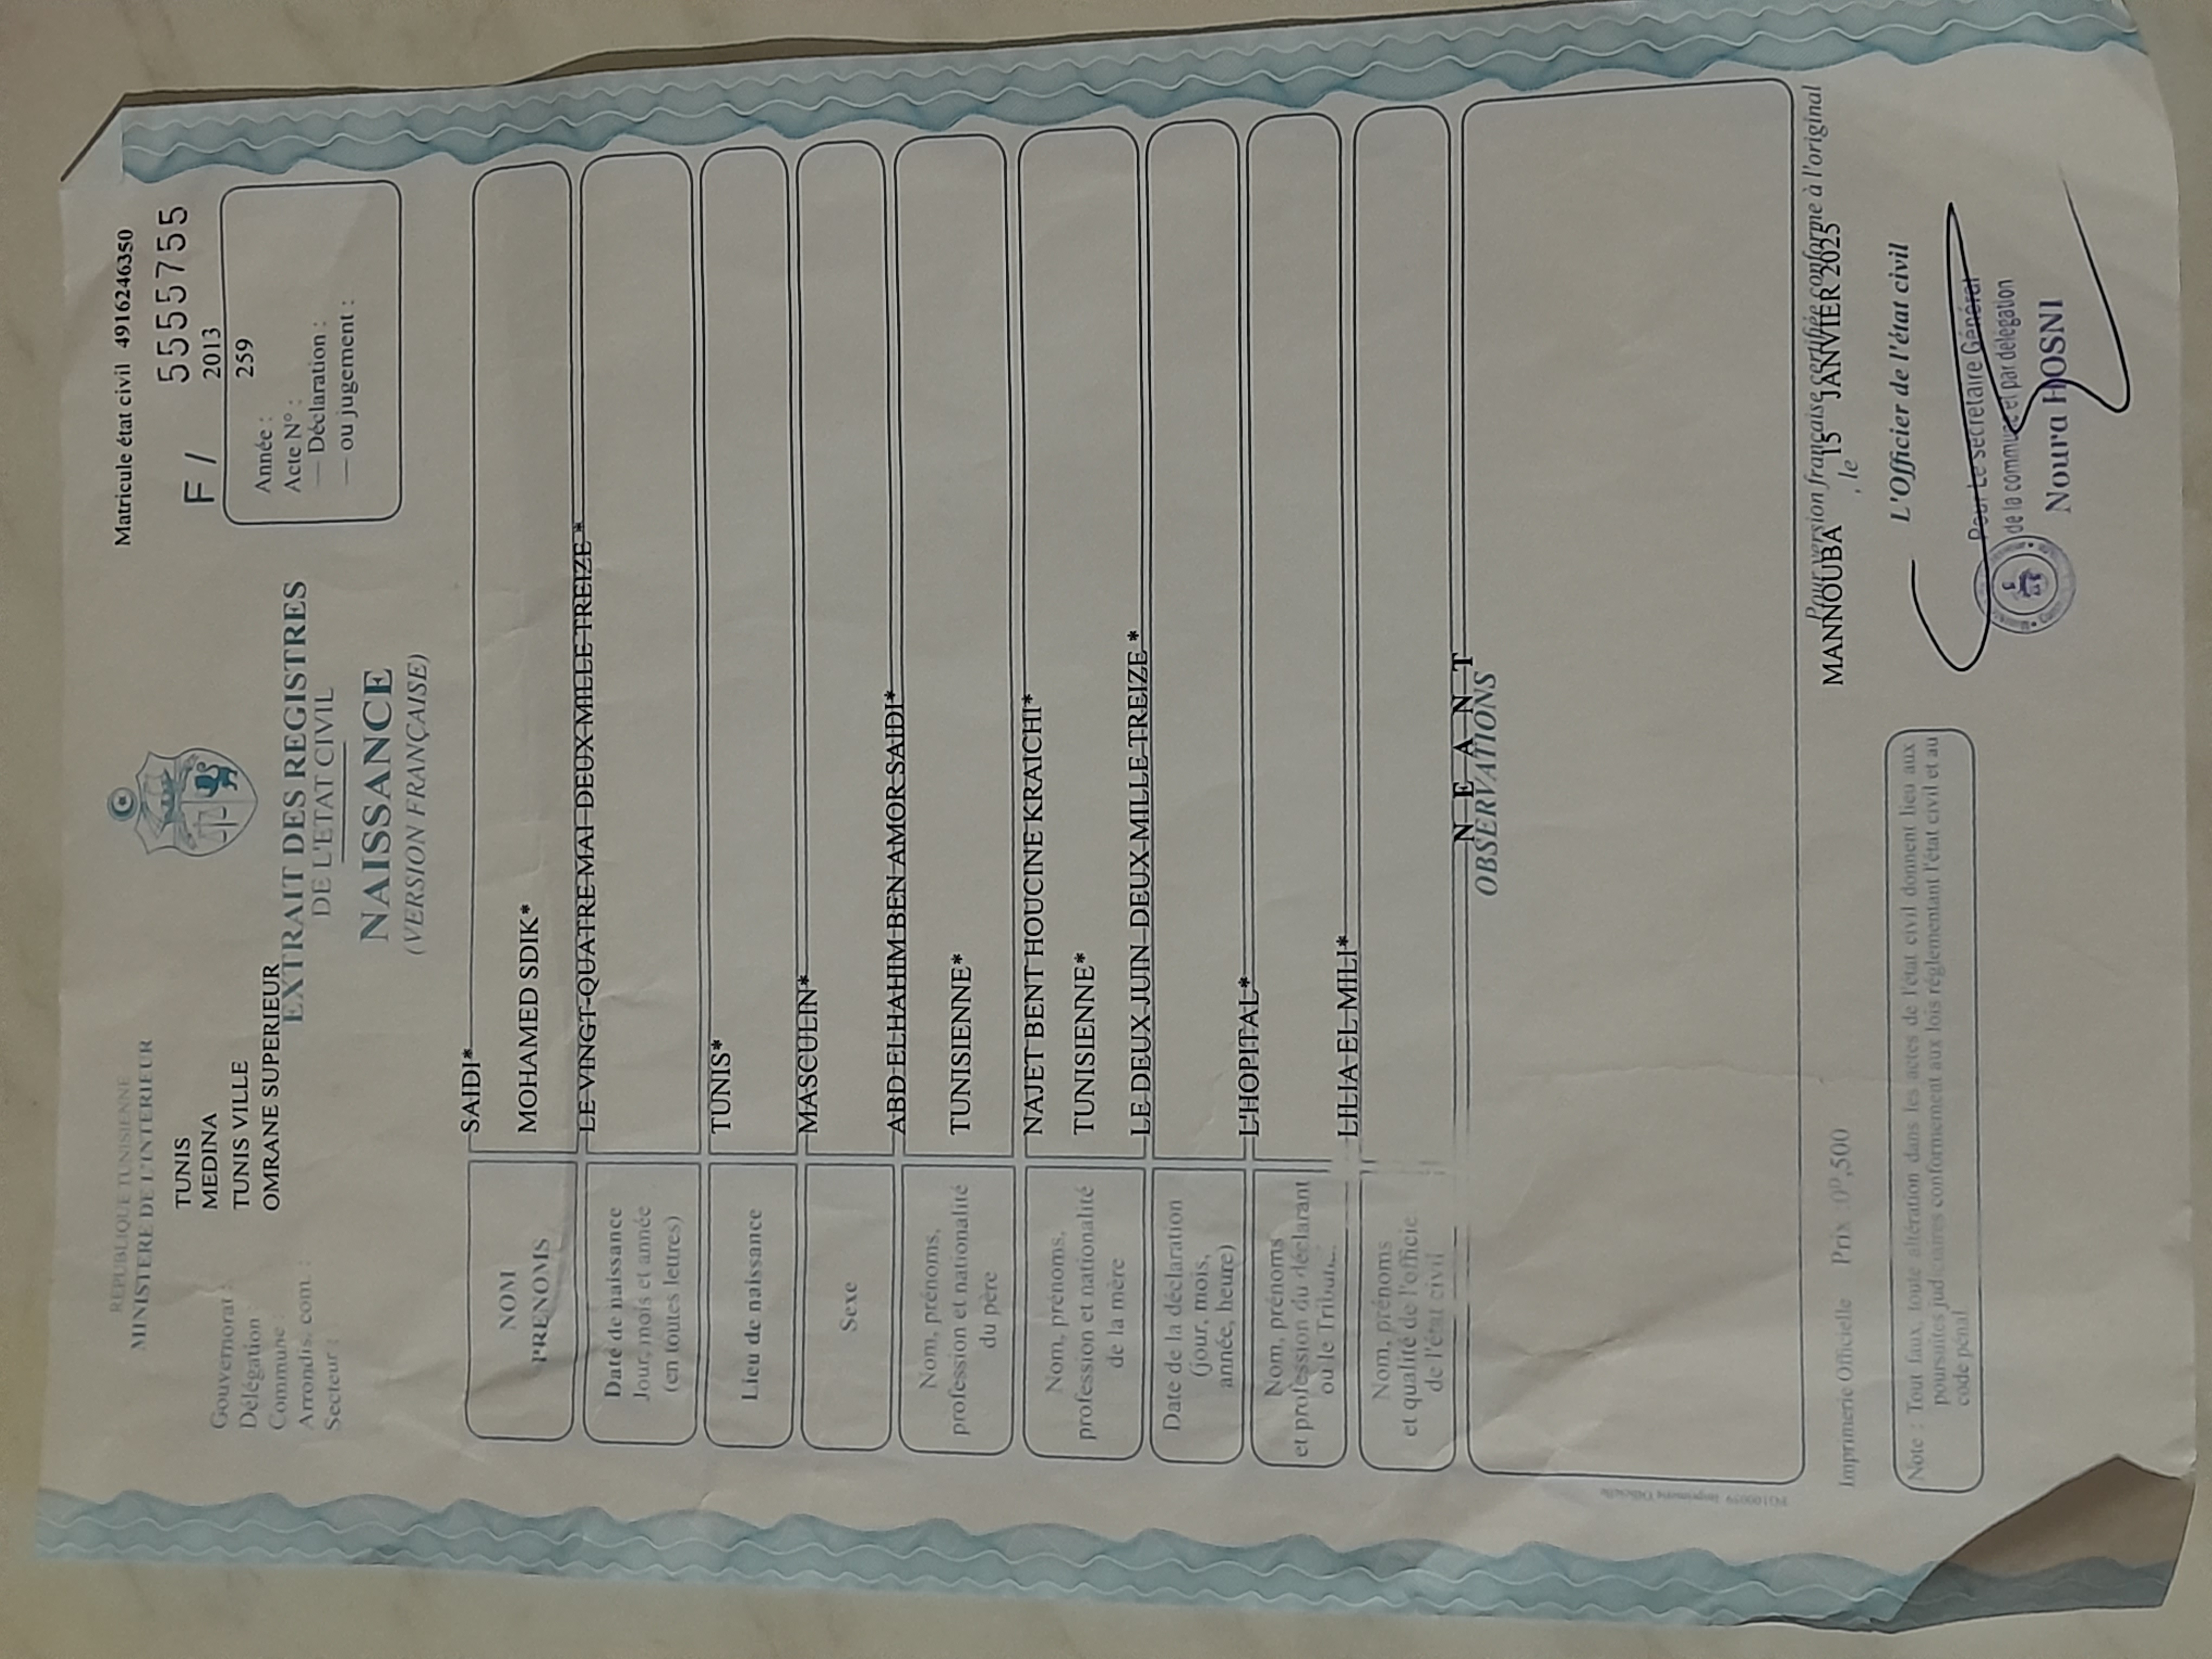 REPUBLIQUE TUNISIENNE
MINISTERE DE L'INTERIEUR
Gouvernorat : TUNIS
Délégation MEDINA
Commune : TUNIS VILLE
Arrondis. com. : OMRANE SUPERIEUR
Secteur :
Matricule état civil 4916246350
F / 55555755
Année : 2013
Acte N° : 259
— Déclaration :
— ou jugement :
EXTRAIT DES REGISTRES
DE L'ETAT CIVIL
NAISSANCE
(VERSION FRANÇAISE)
NOM SAIDI*
PRENOMS MOHAMED SDIK*
Date de naissance
Jour, mois et année
(en toutes lettres)
LE VINGT-QUATRE MAI DEUX MILLE TREIZE *
Lieu de naissance TUNIS*
Sexe MASCULIN*
Nom, prénoms,
profession et nationalité
du père
ABD ELHAHIM BEN AMOR SAIDI*
TUNISIENNE*
Nom, prénoms,
profession et nationalité
de la mère
NAJET BENT HOUCINE KRAICHI*
TUNISIENNE*
Date de la déclaration
(jour, mois,
année, heure)
LE DEUX JUIN DEUX MILLE TREIZE *
Nom, prénoms
et profession du déclarant
ou le
L'HOPITAL*
Nom, prénoms
et qualité de l'officie
de l'état civil
LILIA EL MILI*
N E A N T
OBSERVATIONS
Imprimerie Officielle Prix : 0ᴰ,500
Pour version française certifiée conforme à l'original
MANNOUBA , le 15 JANVIER 2025
L'Officier de l'état civil
Pour Le Secrétaire Général
de la commune et par délégation
Noura HOSNI
Note : Tout faux, toute altération dans les actes de l'état civil donnent lieu aux
poursuites judiciaires conformément aux lois réglementant l'état civil et au
code pénal